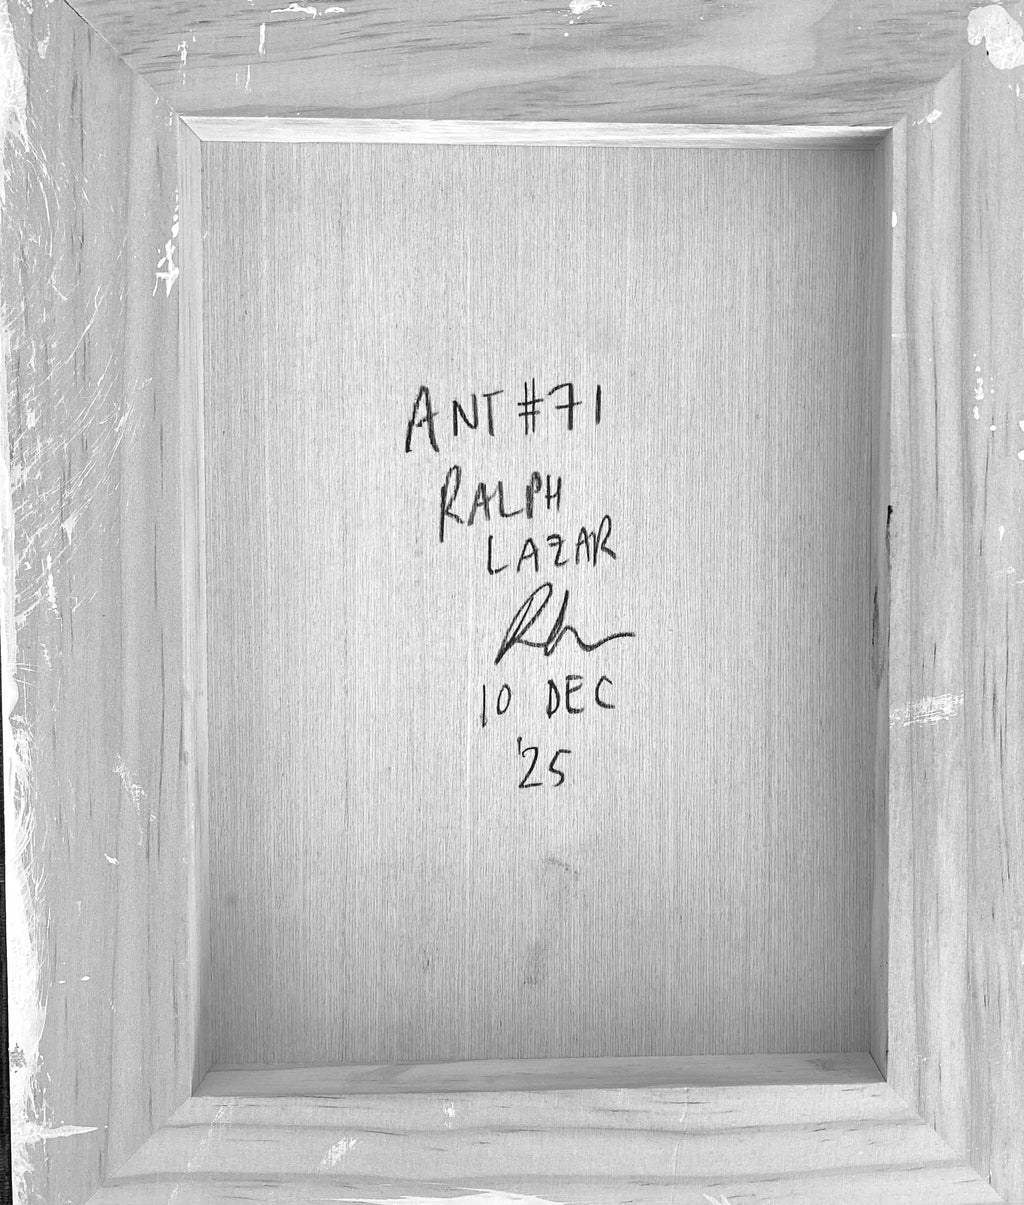 ANT #71
RALPH
LAZAR
10 DEC
'25